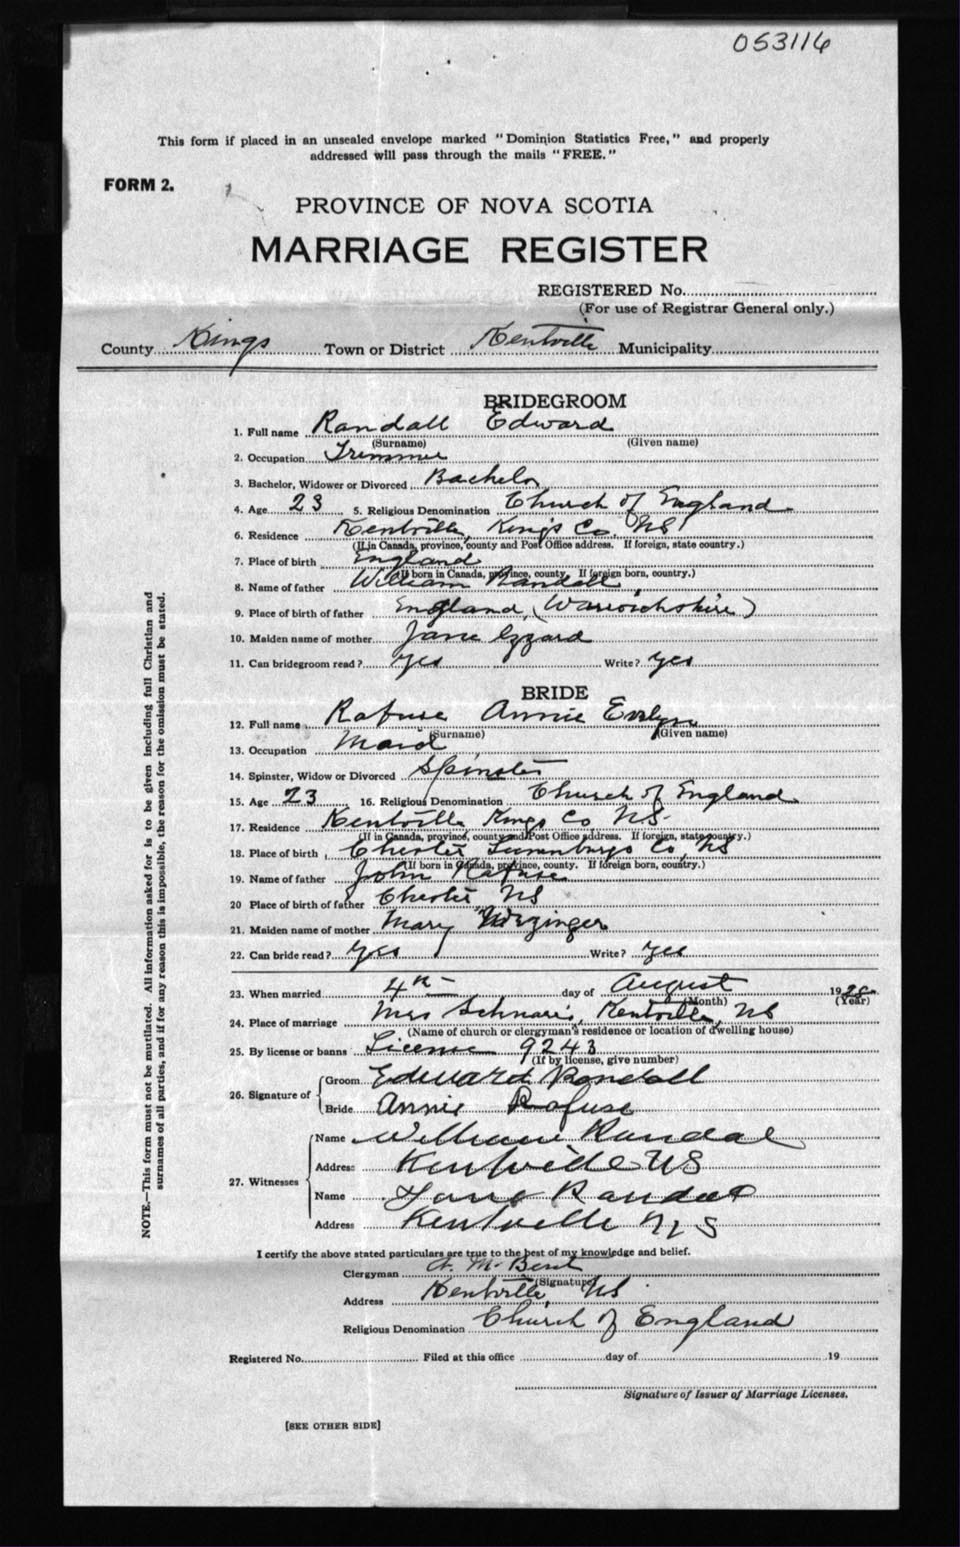 053116
This form if placed in an unsealed envelope marked "Dominion Statistics Free," and properly
addressed will pass through the mails "FREE."
FORM 2.
PROVINCE OF NOVA SCOTIA
MARRIAGE REGISTER
REGISTERED No.
(For use of Registrar General only.)
County Kings Town or District Kentville Municipality
BRIDEGROOM
1. Full name Randall Edward
(Surname) (Given name)
2. Occupation Trimmer
3. Bachelor, Widower or Divorced Bachelor
4. Age 23 5. Religious Denomination Church of England
6. Residence Kentville, Kings Co. NS
(If in Canada, province, county and Post Office address. If foreign, state country.)
7. Place of birth England
(If born in Canada, province, county. If foreign born, country.)
8. Name of father William Randall
9. Place of birth of father England, (Warwickshire)
10. Maiden name of mother Jane Izzard
11. Can bridegroom read? Yes Write? Yes
BRIDE
12. Full name Rafuse Annie Evelyn
(Surname) (Given name)
13. Occupation Maid
14. Spinster, Widow or Divorced Spinster
15. Age 23 16. Religious Denomination Church of England
17. Residence Kentville Kings Co NS.
(If in Canada, province, county and Post Office address. If foreign, state country.)
18. Place of birth Chester Lunenburg Co, NS
(If born in Canada, province, county. If foreign born, country.)
19. Name of father John Rafuse
20 Place of birth of father Chester NS
21. Maiden name of mother Mary
22. Can bride read? Yes Write? Yes
23. When married 4th day of August 1928
(Month) (Year)
24. Place of marriage Mrs Schnare's, Kentville, NS
(Name of church or clergyman's residence or location of dwelling house)
25. By license or banns License 9243
(If by license, give number)
26. Signature of Groom Edward Randall
Bride Annie Rafuse
27. Witnesses Name William Randal
Address Kentville NS
Name Jane Randal
Address Kentville N S
I certify the above stated particulars are true to the best of my knowledge and belief.
Clergyman A. M. Bent
(Signature)
Address Kentville, NS
Religious Denomination Church of England
Registered No. Filed at this office day of 19
Signature of Issuer of Marriage Licenses.
[SEE OTHER SIDE]
NOTE.—This form must not be mutilated. All information asked for is to be given including full Christian and
surnames of all parties, and if for any reason this is impossible, the reason for the omission must be stated.